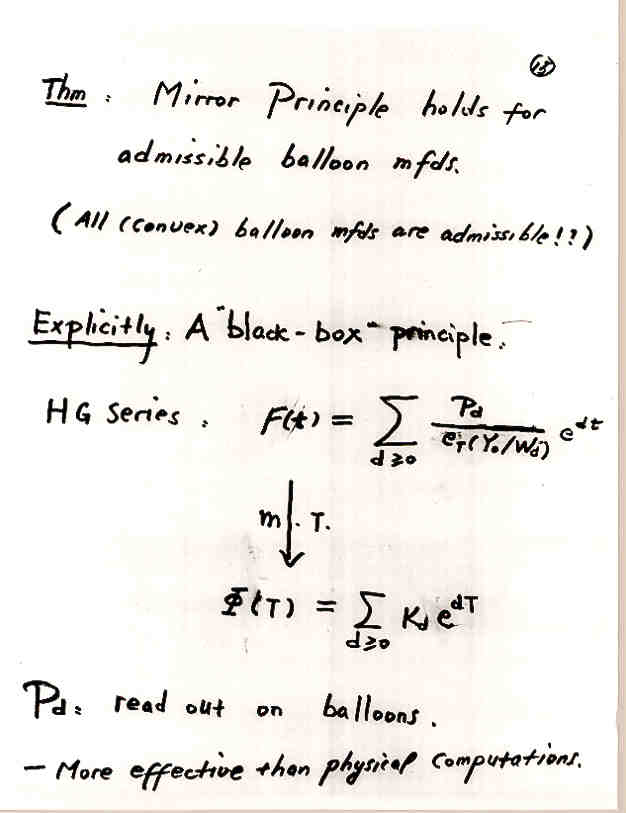 15
Thm : Mirror Principle holds for
admissible balloon mfds.
(All (convex) balloon mfds are admissible!?)
Explicitly: A "black-box" principle.
HG Series : F(t) = ∑_{d≥0} P_d / e_T(Y_0/W_d) e^{dt}
m. T.
Φ(T) = ∑_{d≥0} K_d e^{dT}
P_d: read out on balloons.
- More effective than physical computations.